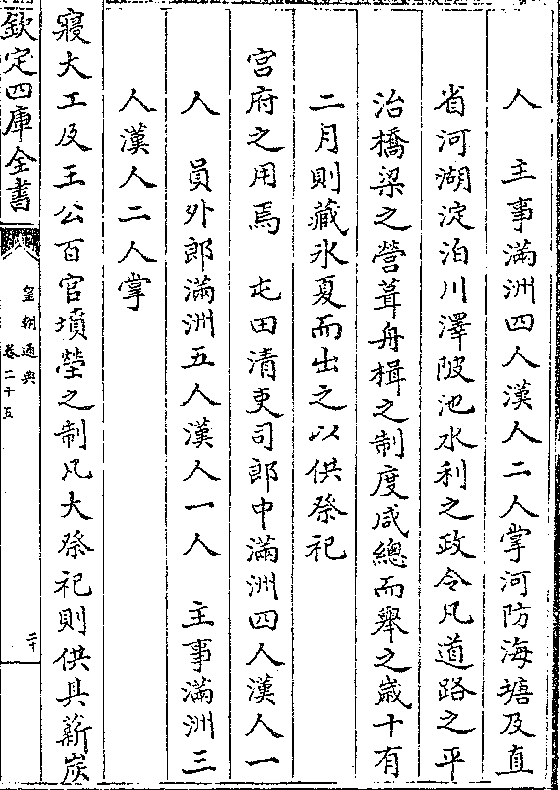 人　主事滿洲四人漢人二人掌河防海塘及直
省河湖淀泊川澤陂池水利之政令凡道路之平
治橋梁之營葺舟楫之制度咸總而舉之歲十有
二月則藏氷夏而出之以供祭祀
宮府之用焉　屯田清吏司郎中滿洲四人漢人一
人　員外郎滿洲五人漢人一人　主事滿洲三
人漢人二人掌
寢大工及王公百官墳塋之制凡大祭祀則供具薪炭
欽定四庫全書
皇朝通典
卷二十五
二十